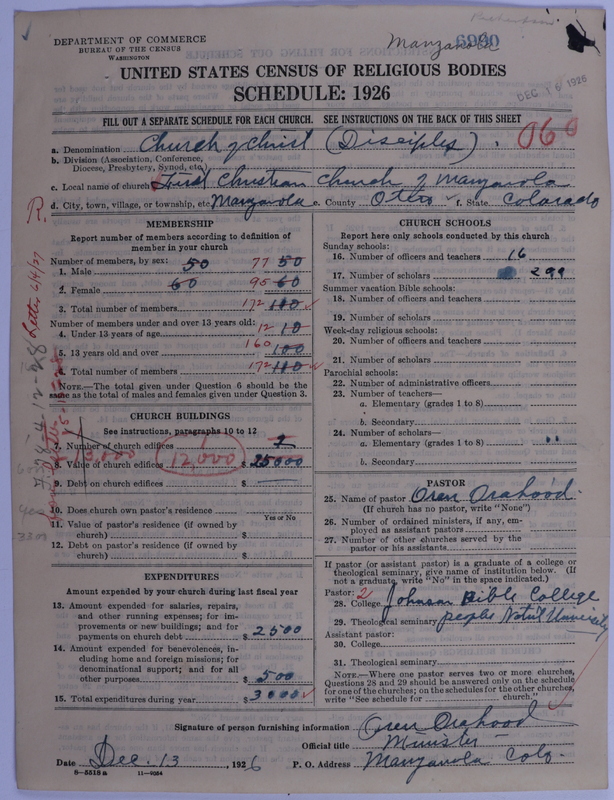 DEPARTMENT OF COMMERCE
BUREAU OF THE CENSUS
WASHINGTON
Manzanola
UNITED STATES CENSUS OF RELIGIOUS BODIES
SCHEDULE: 1926
DEC 16 1926
FILL OUT A SEPARATE SCHEDULE FOR EACH CHURCH. SEE INSTRUCTIONS ON THE BACK OF THIS SHEET
a. Denomination Church of Christ (Disciples) 060
b. Division (Association, Conference, Diocese, Presbytery, Synod, etc.)
c. Local name of church First Christian Church of Manzanola
d. City, town, village, or township, etc. Manzanola e. County Otero f. State Colorado
R.
Letter 6/4/27
MEMBERSHIP
Report number of members according to definition of member in your church
Number of members, by sex:
1. Male 50 77 50
2. Female 60 95 60
3. Total number of members 172 110
Number of members under and over 13 years old:
4. Under 13 years of age 12 10
5. 13 years old and over 160 100
6. Total number of members 172 110
NOTE.—The total given under Question 6 should be the same as the total of males and females given under Question 3.
CHURCH BUILDINGS
See instructions, paragraphs 10 to 12
7. Number of church edifices 1
8. Value of church edifices 13,000 12,000 $ 25000
9. Debt on church edifices $
10. Does church own pastor's residence
Yes or No
11. Value of pastor's residence (if owned by church) $
12. Debt on pastor's residence (if owned by church) $
EXPENDITURES
Amount expended by your church during last fiscal year
13. Amount expended for salaries, repairs, and other running expenses; for improvements or new buildings; and for payments on church debt $ 2500
14. Amount expended for benevolences, including home and foreign missions; for denominational support; and for all other purposes $ 500
15. Total expenditures during year $ 3000
CHURCH SCHOOLS
Report here only schools conducted by this church
Sunday schools:
16. Number of officers and teachers 16
17. Number of scholars 299
Summer vacation Bible schools:
18. Number of officers and teachers
19. Number of scholars
Week-day religious schools:
20. Number of officers and teachers
21. Number of scholars
Parochial schools:
22. Number of administrative officers
23. Number of teachers—
a. Elementary (grades 1 to 8)
b. Secondary
24. Number of scholars—
a. Elementary (grades 1 to 8)
b. Secondary
PASTOR
25. Name of pastor Oren Orahood
(If church has no pastor, write "None")
26. Number of ordained ministers, if any, employed as assistant pastors
27. Number of other churches served by the pastor or his assistants
If pastor (or assistant pastor) is a graduate of a college or theological seminary, give name of institution below. (If not a graduate, write "No" in the space indicated.)
Pastor: 2
28. College Johnson Bible College
29. Theological seminary peoples Nat'l University
Assistant pastor:
30. College
31. Theological seminary
NOTE.—Where one pastor serves two or more churches, Questions 28 and 29 should be answered only on the schedule for one of the churches; on the schedules for the other churches, write "See schedule for church."
Signature of person furnishing information Oren Orahood
Official title Minister
Date Dec. 13, 1926 P. O. Address Manzanola Colo.
8—5518a 11—9054